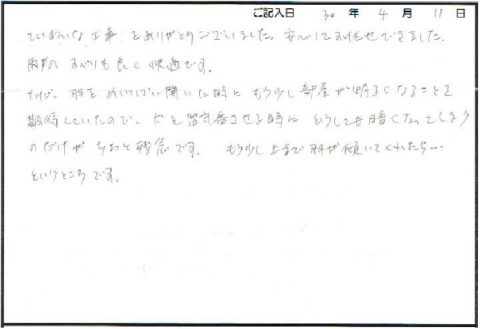 ご記入日 30年 4月 11日
ていねいな工事、ありがとうございました。安心しておまかせできました。
雨戸のすべりも良く快適です。
羽をめいっぱい開いた時にもう少し部屋が明るくなることを
期待していたので、犬を留守番させる時にどうしても暗くなってしまう
のだけがちょっと残念です。 もう少し上まで羽が傾いてくれたら…
というところです。